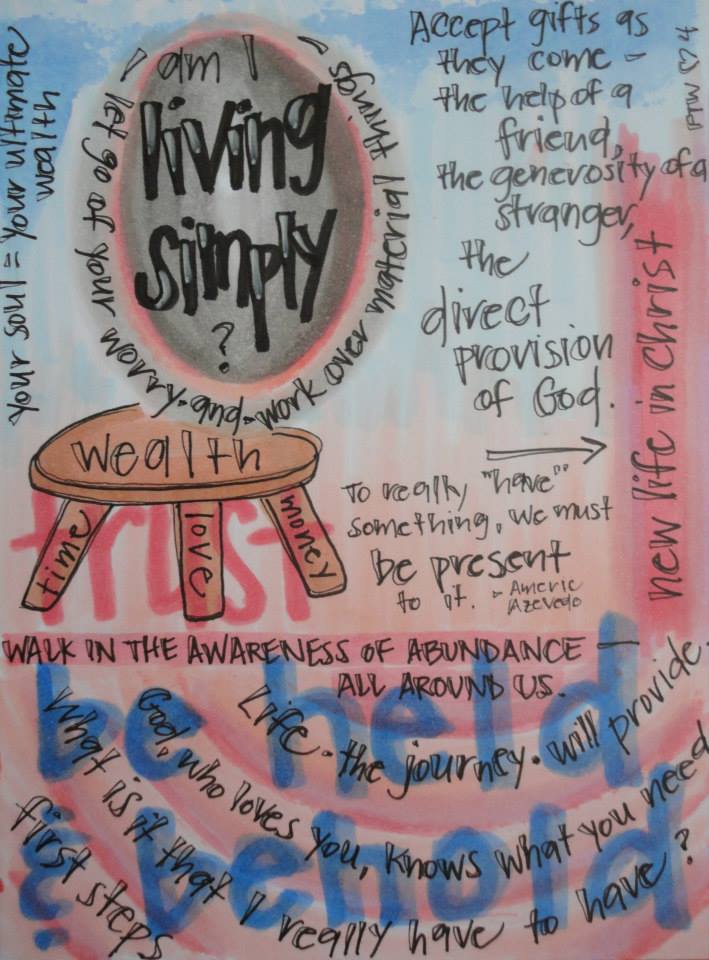 your soul = your ultimate
wealth
I am I
living
simply
?
let go of your worry-and-work over material things
Accept gifts as
they come -
the help of a
friend,
the generosity of a
stranger,
the
direct
provision
of God.
new life in Christ
wealth
time
love
money
trust
To really "have"
something, we must
be present
to it. - Americ
Azevedo
WALK IN THE AWARENESS OF ABUNDANCE —
ALL AROUND US.
be held
& behold
Life - the journey - will provide.
God, who loves you, knows what you need
What is it that I really have to have?
first steps